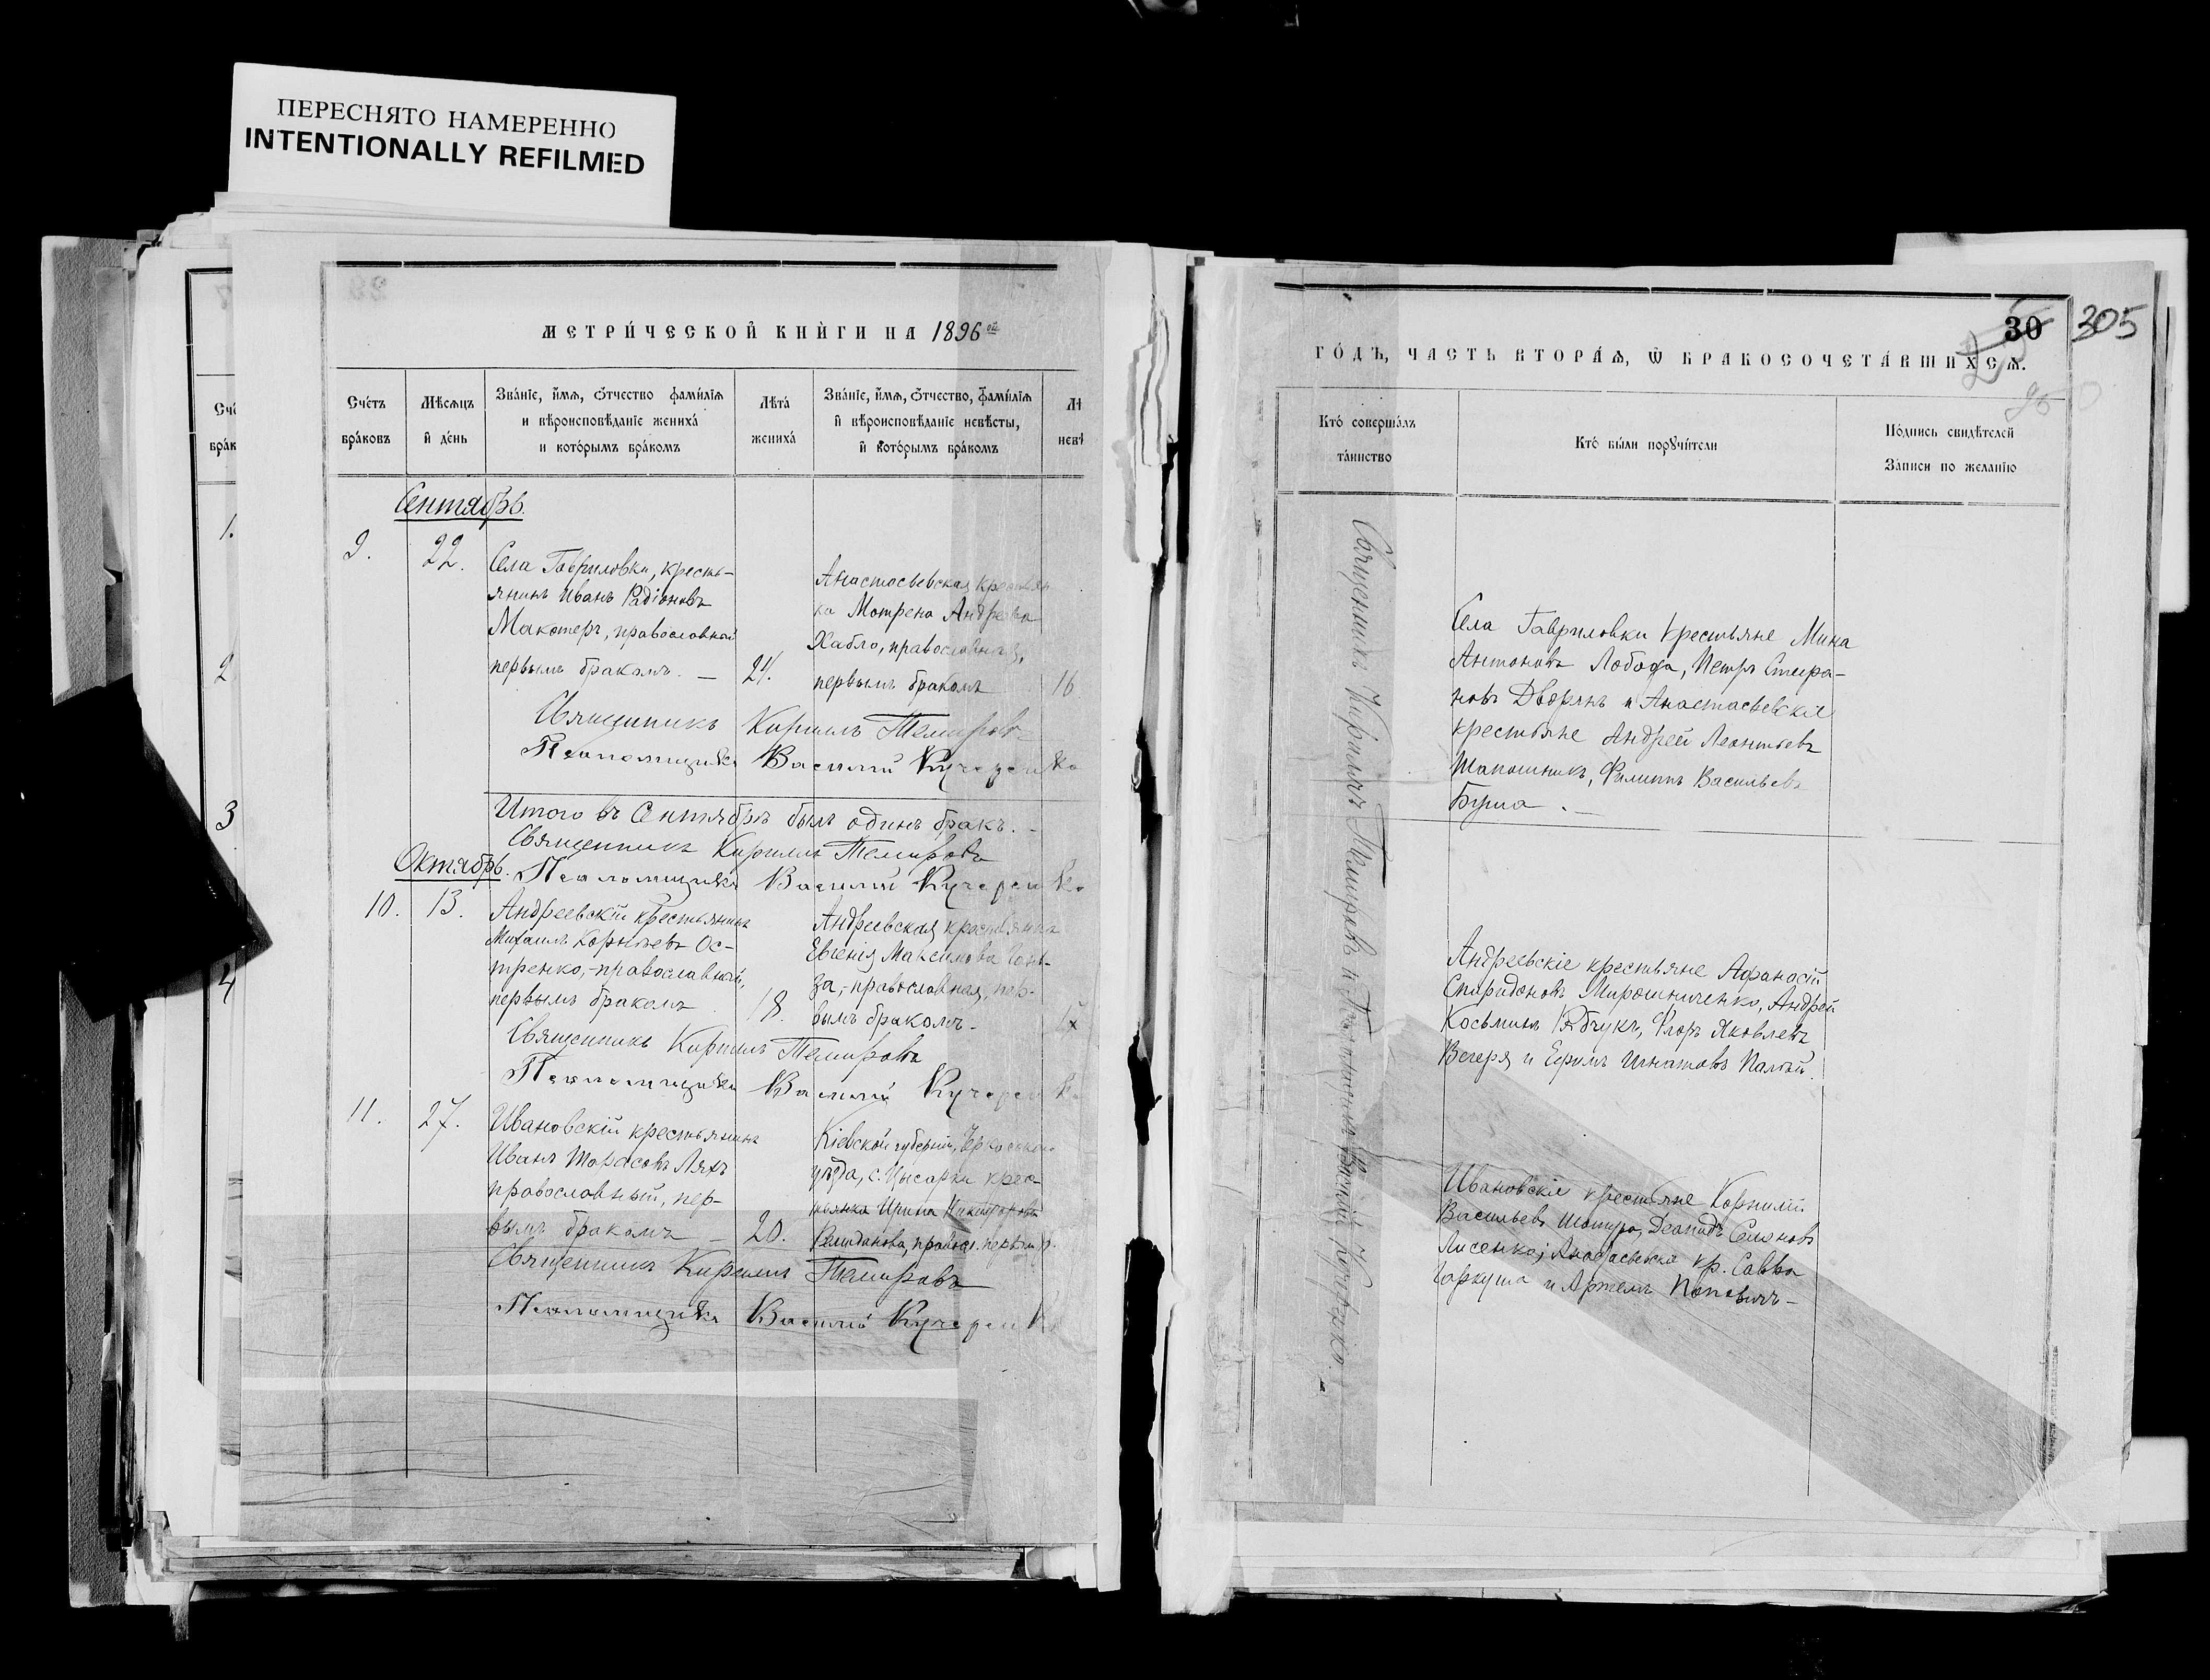 ПЕРЕСНЯТО НАМЕРЕННО
INTENTIONALLY REFILMED
МЕТРИ́ЧЕСКОЙ КНИ́ГИ НА 1896 ой
Сче́тъ
бра́ковъ
Мѣсяцъ
и҆ де́нь
Зва́нїе, и҆́мѧ, ѻ҆́тчество фами́лїѧ
и вѣроисповѣданїе жениха́
и кото́рымъ бра́комъ
Лѣта́
жениха́
Зва́нїе, и҆́мѧ, ѻ҆́тчество, фами́лїѧ
и҆ вѣроисповѣданїе невѣ́сты,
и҆ кото́рымъ бра́комъ
Сентябрь.
9.
22.
Села Гавриловки, кресть-
янинъ Иванъ Радіоновъ
Макотеръ, православный
первымъ бракомъ. —
21.
Анастасьевская крестьян
ка Мотрена Андреева
Хабло, православная,
первымъ бракомъ
16
Священникъ Кириллъ Темировъ
Псаломщикъ Василій Кучеренко
Итого въ Сентябрѣ былъ одинъ бракъ. -
Священникъ Кириллъ Темировъ
Октябрь.
Псаломщикъ Василій Кучеренко
10.
13.
Андреевскій крестьянинъ
Михаилъ Корнѣевъ Ос-
тренко,-православный,
первымъ бракомъ
18.
Андреевская крестьянка
Евгенія Максимова
за,-православная, пер-
вымъ бракомъ-
Священникъ Кириллъ Темировъ
Псаломщикъ Василій Кучеренко
11.
27.
Ивановскій крестьянинъ
Иванъ Тарасовъ Ляхъ
православный, пер-
вымъ бракомъ —
20.
Кіевской губерніи, Черкасскаго
уѣзда, с. Цысарки крес-
тьянка Ирина Никифорова
правосл. первым
Священникъ Кириллъ Темировъ
Псаломщикъ Василій Кучеренко
30
305
ГО́ДЪ, ЧАСТЬ ВТОРА́Ѧ, Ѽ БРАКОСОЧЕТА́ВШИХСѦ.
Кто́ соверша́лъ
та́инство
Кто́ бы́ли порꙋчи́тели
По́дпись свидѣ́телей
За́писи по жела́нїю
Священникъ Кириллъ Темировъ и Псаломщикъ Василій Кучеренко.
Села Гавриловки крестьяне Мина
Антоновъ Лобода, Петръ Стефа-
новъ Дворянъ и Анастасьевскіе
крестьяне Андрей Леонтьевъ
Шапошникъ, Филиппъ Васильевъ
Бурла. —
Андреевскіе крестьяне Афанасій
Спиридоновъ Мирошниченко, Андрей
Косьминъ Рябчукъ, Флоръ Яковлевъ
Вечеря и Ефимъ Игнатовъ Палій.
Ивановскіе крестьяне Корнилій
Васильевъ Шатура, Леонидъ Семеновъ
Лисенко; Анастасьевскіе кр. Савва
Гаркуша и Артемъ Поповичъ-